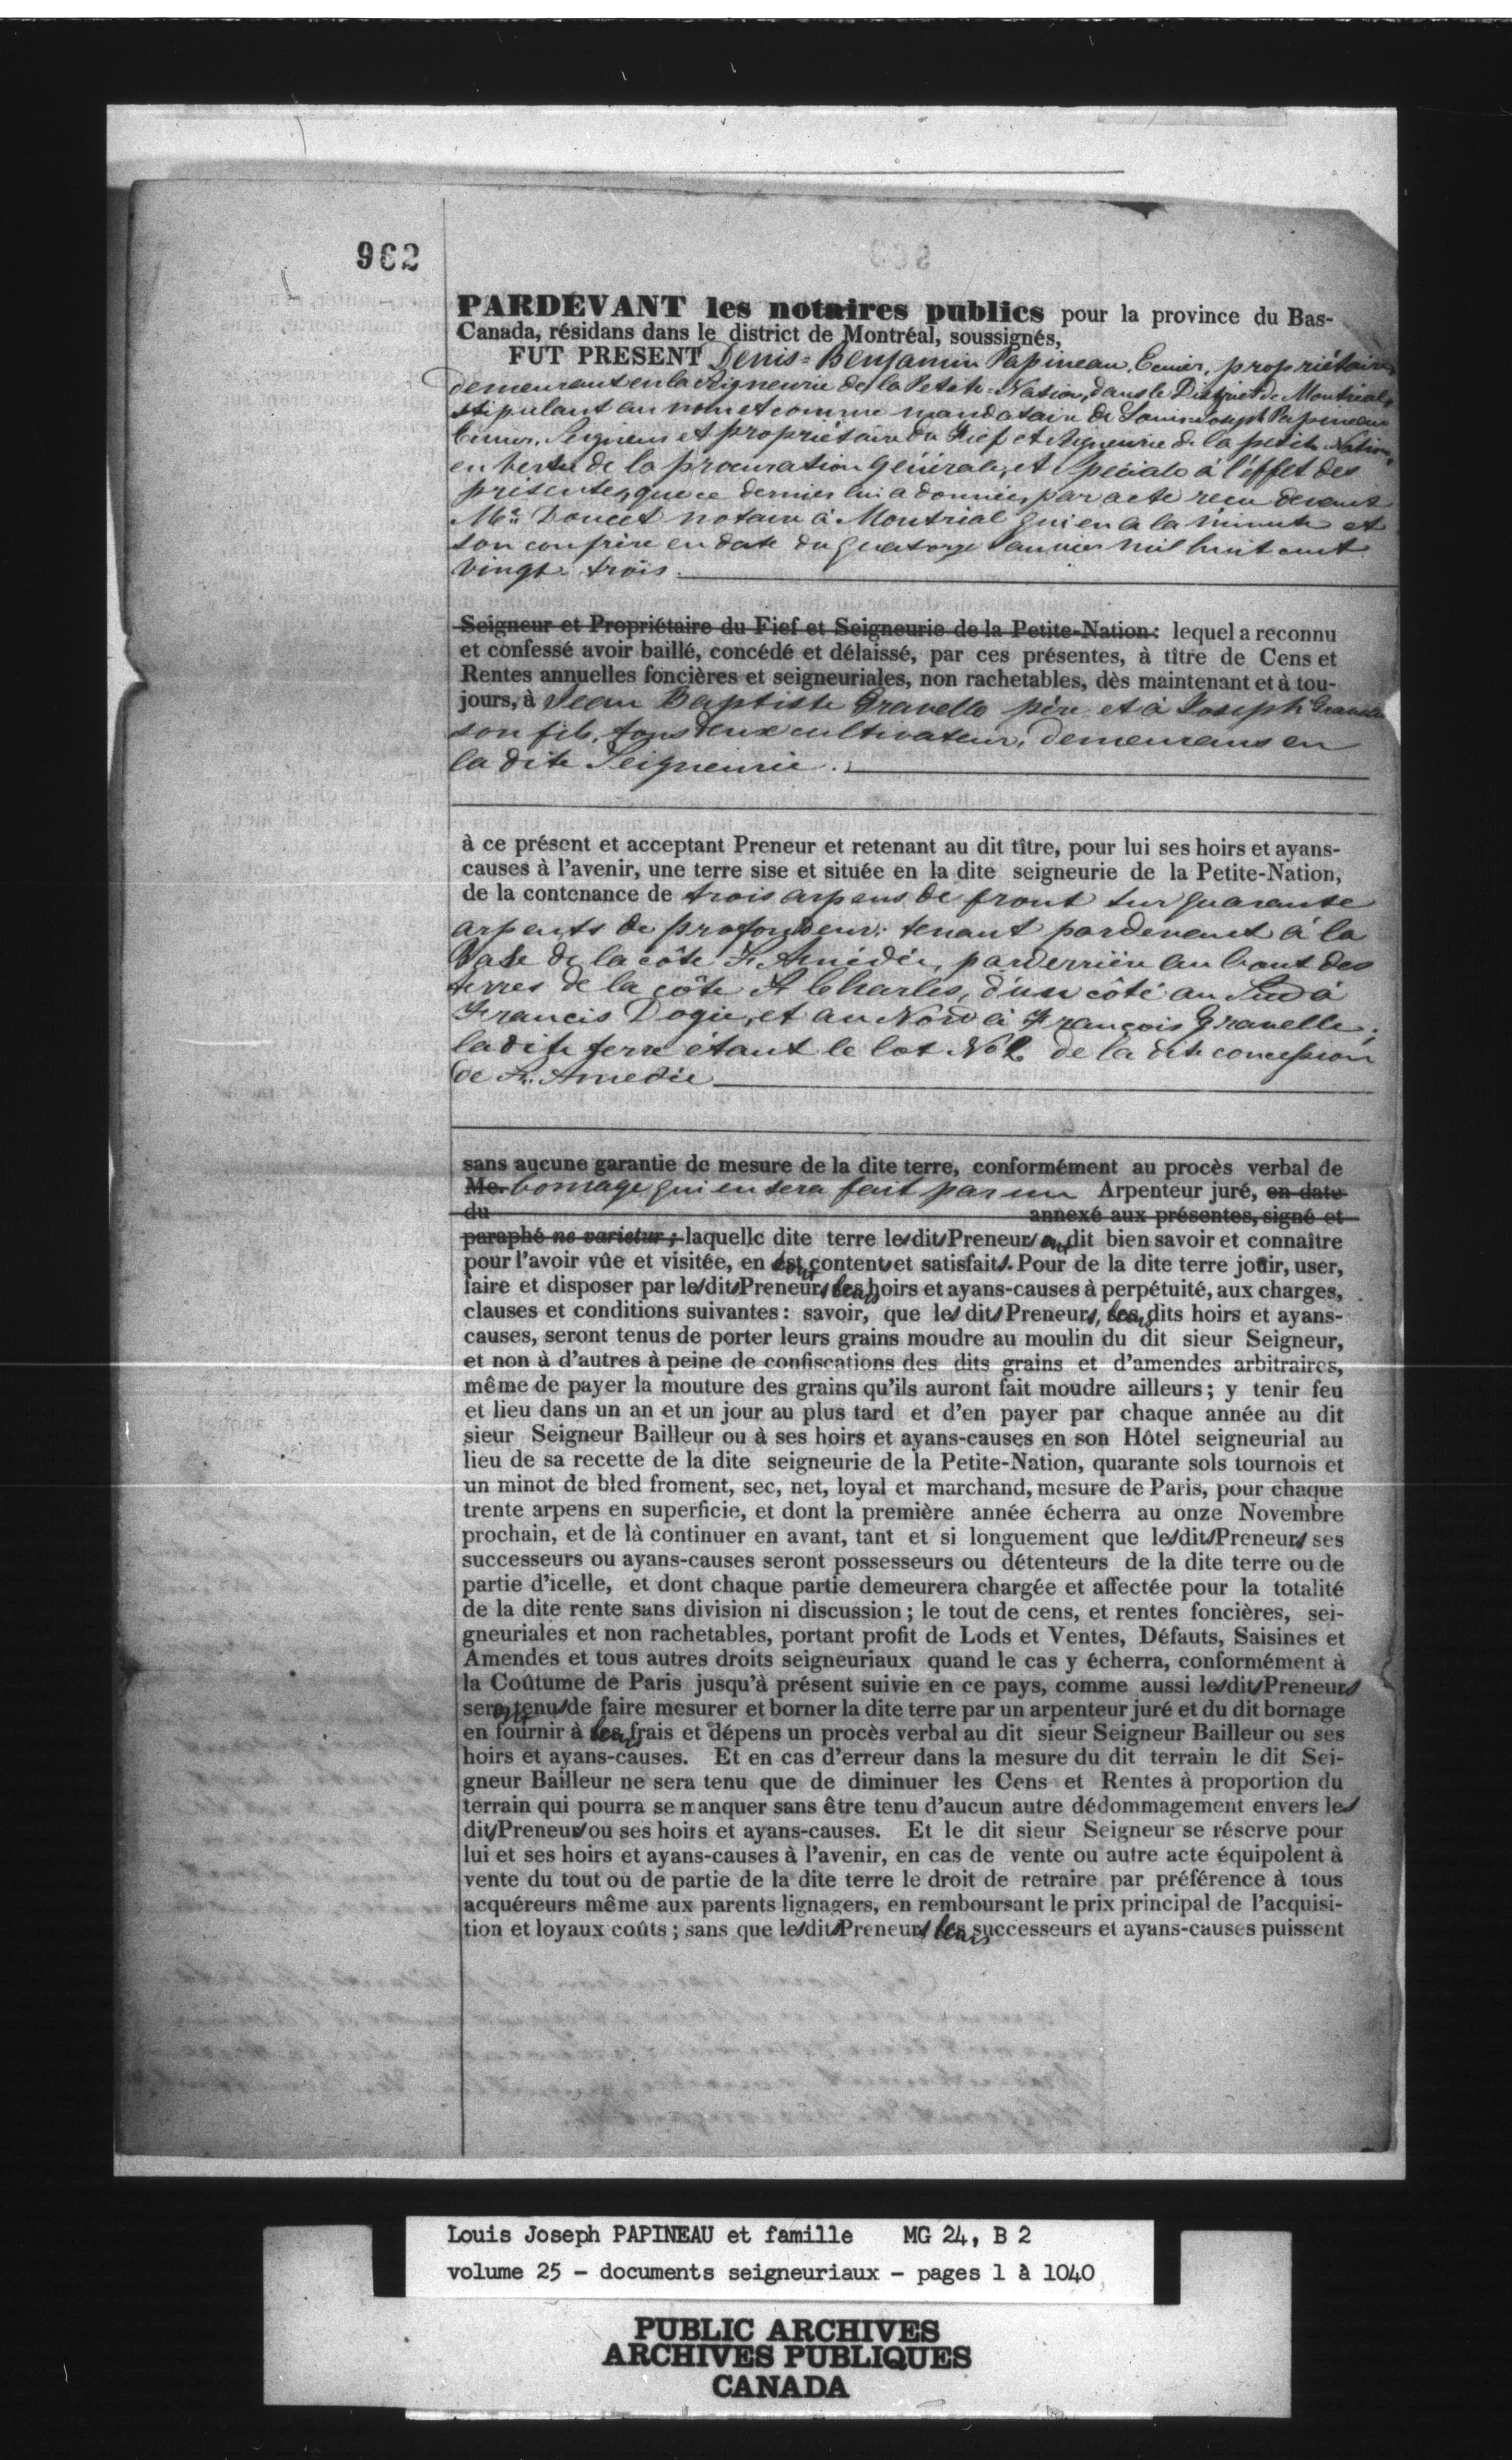 962
PARDEVANT les notaires publics pour la province du Bas-
Canada, résidans dans le district de Montréal, soussignés,
FUT PRESENT Denis-Benjamin Papineau, Ecuier, propriétaire,
demeurant en la Seigneurie de la Petite-Nation, dans le District de Montréal,
stipulant au nom et comme mandataire de Louis Joseph Papineau
Ecuier, Seigneur et propriétaire du Fief et Seigneurie de la petite Nation,
en vertu de la procuration générale, et spéciale à l'effet des
présentes, que ce dernier lui a donnée, par acte reçu devant
Mtre Doucet notaire à Montréal qui en a la minute et
son confrère en date du quatorze Janvier mil huit cent
vingt trois.
Seigneur et Propriétaire du Fief et Seigneurie de la Petite-Nation: lequel a reconnu
et confessé avoir baillé, concédé et délaissé, par ces présentes, à tître de Cens et
Rentes annuelles foncières et seigneuriales, non rachetables, dès maintenant et à tou-
jours, à Jean Baptiste Gravelle père et à Joseph Gravelle
son fils, tous deux cultivateurs, demeurans en
la dite Seigneurie.
à ce présent et acceptant Preneur et retenant au dit tître, pour lui ses hoirs et ayans-
causes à l'avenir, une terre sise et située en la dite seigneurie de la Petite-Nation,
de la contenance de trois arpens de front sur quarante
arpents de profondeur: tenant pardevant à la
base de la côte St. Amédée, parderrière au bout des
terres de la côte St Charles, d'un côté au Sud à
Francis Dogie, et au Nord à François Gravelle;
la dite terre étant le lot No 2 de la dite concession
de St. Amédée
sans aucune garantie de mesure de la dite terre, conformément au procès verbal de
Me. bornage qui en sera fait par un Arpenteur juré, en date
du annexé aux présentes, signé et
paraphé ne varietur; laquelle dite terre les dits Preneurs ont dit bien savoir et connaître
pour l'avoir vûe et visitée, en sont contents et satisfaits. Pour de la dite terre jouir, user,
faire et disposer par les dits Preneurs leurs hoirs et ayans-causes à perpétuité, aux charges,
clauses et conditions suivantes: savoir, que les dits Preneurs, leurs dits hoirs et ayans-
causes, seront tenus de porter leurs grains moudre au moulin du dit sieur Seigneur,
et non à d'autres à peine de confiscations des dits grains et d'amendes arbitraires,
même de payer la mouture des grains qu'ils auront fait moudre ailleurs; y tenir feu
et lieu dans un an et un jour au plus tard et d'en payer par chaque année au dit
sieur Seigneur Bailleur ou à ses hoirs et ayans-causes en son Hôtel seigneurial au
lieu de sa recette de la dite seigneurie de la Petite-Nation, quarante sols tournois et
un minot de bled froment, sec, net, loyal et marchand, mesure de Paris, pour chaque
trente arpens en superficie, et dont la première année écherra au onze Novembre
prochain, et de là continuer en avant, tant et si longuement que les dits Preneurs ses
successeurs ou ayans-causes seront possesseurs ou détenteurs de la dite terre ou de
partie d'icelle, et dont chaque partie demeurera chargée et affectée pour la totalité
de la dite rente sans division ni discussion; le tout de cens, et rentes foncières, sei-
gneuriales et non rachetables, portant profit de Lods et Ventes, Défauts, Saisines et
Amendes et tous autres droits seigneuriaux quand le cas y écherra, conformément à
la Coûtume de Paris jusqu'à présent suivie en ce pays, comme aussi les dits Preneurs
seront tenus de faire mesurer et borner la dite terre par un arpenteur juré et du dit bornage
en fournir à leurs frais et dépens un procès verbal au dit sieur Seigneur Bailleur ou ses
hoirs et ayans-causes. Et en cas d'erreur dans la mesure du dit terrain le dit Sei-
gneur Bailleur ne sera tenu que de diminuer les Cens et Rentes à proportion du
terrain qui pourra se manquer sans être tenu d'aucun autre dédommagement envers les
dits Preneurs ou ses hoirs et ayans-causes. Et le dit sieur Seigneur se réserve pour
lui et ses hoirs et ayans-causes à l'avenir, en cas de vente ou autre acte équipolent à
vente du tout ou de partie de la dite terre le droit de retraire par préférence à tous
acquéreurs même aux parents lignagers, en remboursant le prix principal de l'acquisi-
tion et loyaux coûts; sans que les dits Preneurs leurs successeurs et ayans-causes puissent
Louis Joseph PAPINEAU et famille MG 24, B 2
volume 25 - documents seigneuriaux - pages 1 à 1040
PUBLIC ARCHIVES
ARCHIVES PUBLIQUES
CANADA